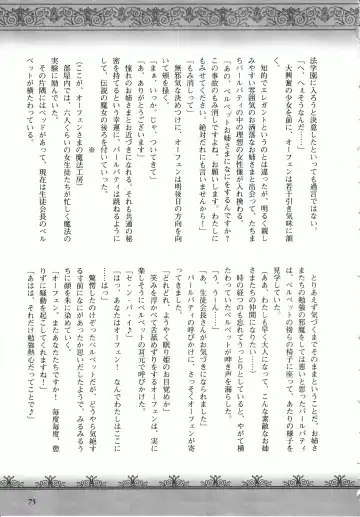 法学園に入ろうと決意したといっても過言ではない。
「へ、へぇそうなんだ……」
大興奮の少女を前に、オーフェンは若干引き気味に頷いた。
知的でエレガントというのとは違ったが、明るく親しみやすい雰囲気のお洒落なお姉さまと出会って、たちまちパールバティの中の理想の女性像が入れ換わる。
「あの、ベルベットお姉さまになにとぞお伝えください。この事故のもみ消しですよね。お願いします。わたしにもみさせてください。絶対だれにも言いませんから！」
「もみ消しって」
無邪気な決めつけに、オーフェンは明後日の方向を向いて頬を掻く。
「まぁ、いっか。じゃ、ついてきて」
「あ、ありがとうございますっ」
憧れのお姉さまとお近づきになれる。それも共通の秘密を持てるという幸運に、パールバティは跳ねるようにして、伝説の魔女の後ろを付いていった。
※
(ここが、オーフェンさまの魔法工房)
部屋内では、六人くらいの女生徒たちが忙しく魔法の実験に励んでいた。
その片隅にはベッドがあって、現在は生徒会長のベルベットが横たわっている。
とりあえず気づくまでそのままということだ。お姉さまたちの勉強の邪魔をしては悪いと思ったパールバティは、ベルベットの傍らの椅子に座って、あたりの様子を見学していた。
「ああ、わたしも早く大人になって、こんな素敵なお姉さまたちの仲間になりたい」
時の経つのも忘れてうっとりとしていると、やがて横たわっていたベルベットが呻き声を漏らした。
「う、う～ん」
「あ、生徒会長さんがお気づきになられました」
パールバティの呼びかけに、さっそくオーフェンが寄ってきました。
「どれどれ、ようやく眠り姫のお目覚めか」
笑みを浮かべて舌舐めずりをするオーフェンは、実に楽しそうにベルベットの耳元で呼びかけた。
「セ・ン・パ・イ♪」
「はっ、あなたはオーフェン！　なんでわたしはここに……はっ」
驚愕したのけぞったベルベットだが、どうやら気絶する前になにがあったか思いだしたようで、みるみるうちに顔を朱に染めていく。
「オーフェン！　またあなたたちですか！　毎度毎度、懲りずに騒動を起こしてくれますね！」
「あはは、それだけ勉強熱心だってことで♪」
75